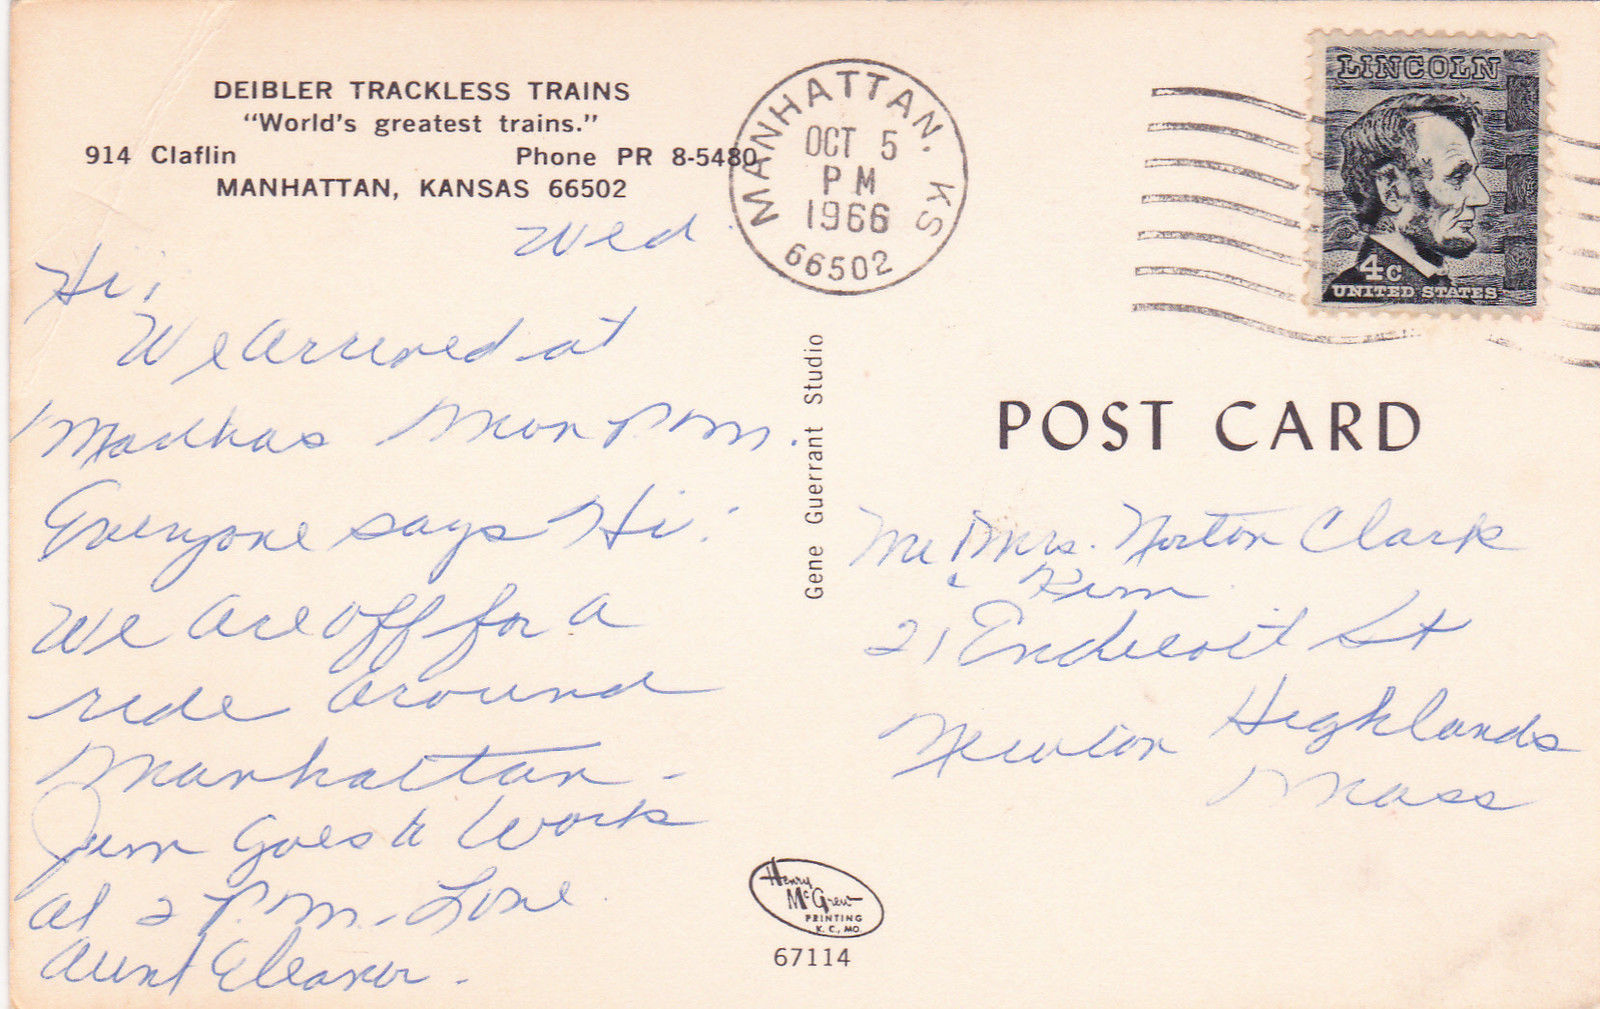 DEIBLER TRACKLESS TRAINS
"World's greatest trains."
914 Claflin Phone PR 8-5480
MANHATTAN, KANSAS 66502
Wed
Hi,
We arrived at
Mon P.M.
Everyone says Hi.
We are off for a
ride around
Manhattan -
Jim Goes to Work
at 2 P.M. - Love
Aunt Eleanor -
MANHATTAN, KS
OCT 5
PM
1966
66502
LINCOLN
4c
UNITED STATES
Gene Guerrant Studio
POST CARD
Mr & Mrs. Norton Clark
& Kim
21 Endicott St
Newton Highlands
Mass
Henry
McGrew
PRINTING
K. C., MO.
67114